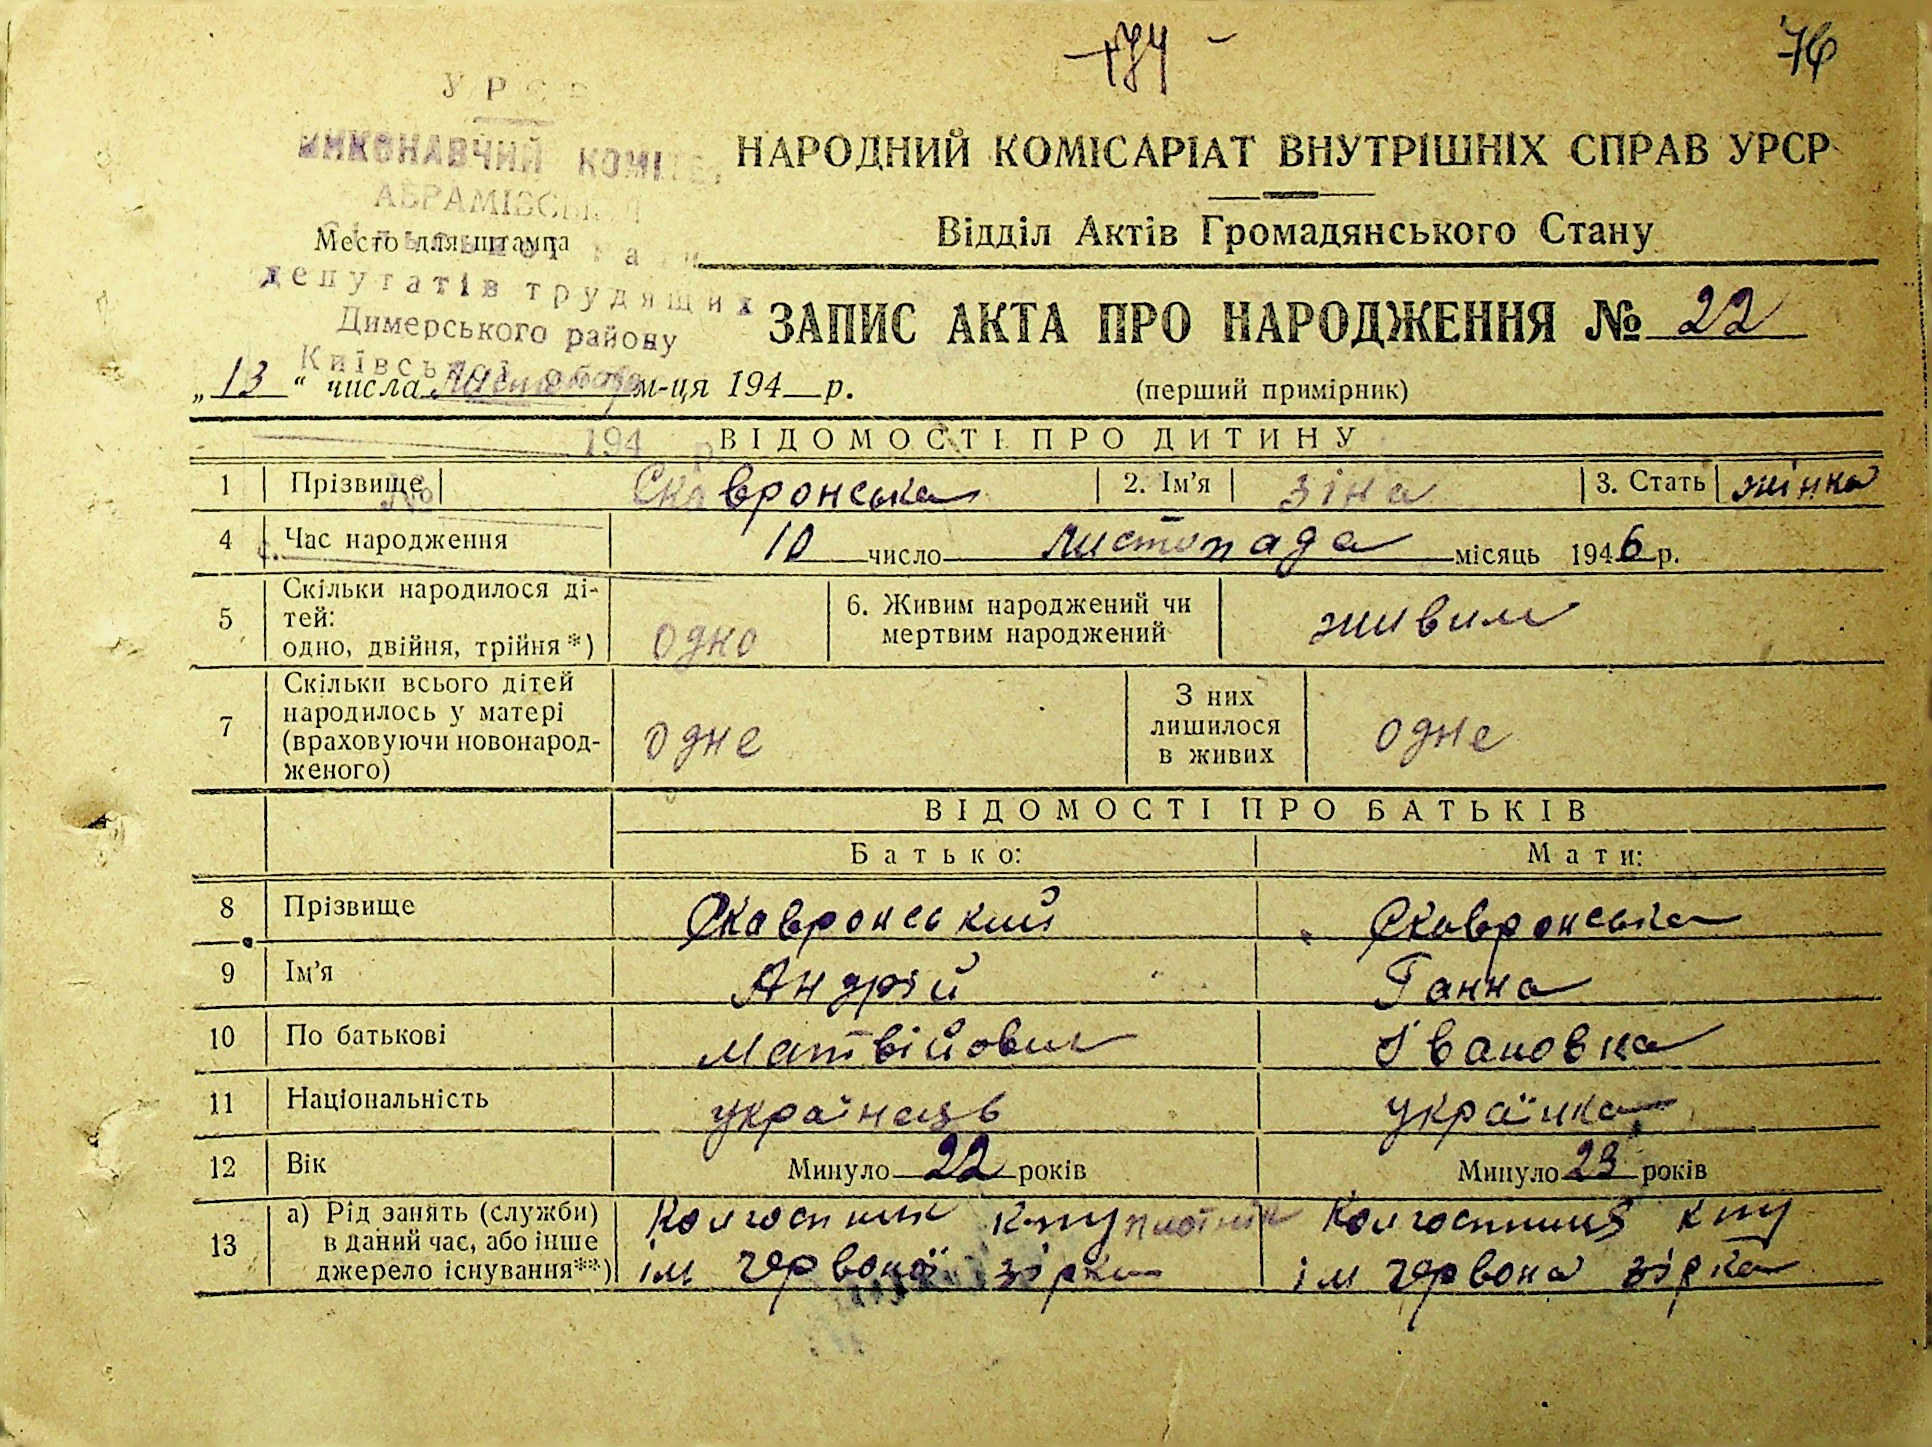 76
УРСР
ВИКОНАВЧИЙ КОМІТЕ
АБРАМІВСЬКОЇ
Место для штампа
депутатів трудящих
Димерського району
Київської
НАРОДНИЙ КОМІСАРІАТ ВНУТРІШНІХ СПРАВ УРСР
Відділ Актів Громадянського Стану
ЗАПИС АКТА ПРО НАРОДЖЕННЯ № 22
„13“ числа м-ця 194 р. (перший примірник)
194 р.
ВІДОМОСТІ ПРО ДИТИНУ
1 Прізвище Скавронська 2. Ім'я Зіна 3. Стать жінка
№
4 Час народження 10 число листопада місяць 1946 р.
5 Скільки народилося ді-
тей:
одно, двійня, трійня*) одно
6. Живим народжений чи
мертвим народжений живим
7 Скільки всього дітей
народилось у матері
(враховуючи новонарод-
женого) одне
З них
лишилося
в живих одне
ВІДОМОСТІ ПРО БАТЬКІВ
Батько: Мати:
8 Прізвище Скавронський Скавронська
9 Ім'я Андрій Ганна
10 По батькові Матвійович Івановна
11 Національність українець українка
12 Вік Минуло 22 років Минуло 23 років
13 а) Рід занять (служби)
в даний час, або інше
джерело існування**)
Колгоспник
ім Червоної зірки
Колгоспниця
ім Червона зірка